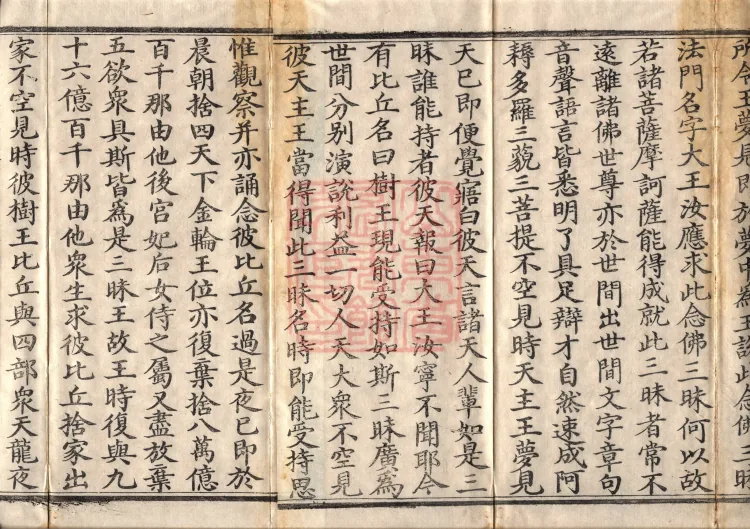 所令王夢見即於夢中爲王說此念佛三昧
法門名字大王汝應求此念佛三昧何以故
若諸菩薩摩訶薩能得成就此三昧者常不
遠離諸佛世尊亦於世間出世間文字章句
音聲語言皆悉明了具足辯才自然速成阿
耨多羅三藐三菩提不空見時天主王夢見
天已即便覺寤白彼天言諸天人輩如是三
昧誰能持者彼天報曰大王汝寧不聞耶今
有比丘名曰樹王現能受持如斯三昧廣爲
世間分別演說利益一切人天大衆不空見
彼天主王當得聞此三昧名時即能受持思
惟觀察并亦誦念彼比丘名過是夜已即於
晨朝捨四天下金輪王位亦復棄捨八萬億
百千那由他後宮妃后女侍之屬又盡放棄
五欲衆具斯皆爲是三昧王故王時復與九
十六億百千那由他衆生求彼比丘捨家出
家不空見時彼樹王比丘與四部衆天龍夜